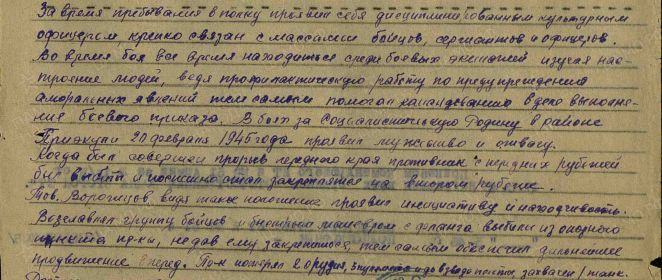 За время пребывания в полку проявил себя дисциплинированным культурным
офицером, крепко связан с массами бойцов, сержантов и офицеров.
Во время боя все время находиться среди боевых экипажей изучая нас-
троение людей, ведя профилактическую работу по предупреждения
аморальных явлений тем самым помогал командованию в деле выполне-
ния боевого приказа. В боях за Социалистическую Родину в районе
20 февраля 1945 года проявил мужество и отвагу.
Когда был совершен прорыв переднего края противник с передних рубежей
был выбит и поспешно стал закрепляться на втором рубеже.
Тов. Воротицов, видя такое положение проявил инициативу и находчивость.
Возглавлял группу бойцов и быстрым маневром с фланга выбили из опорного
пункта пр-ка, не дав ему закрепиться, тем самым обеспечил дальнейшее
продвижение вперед. Пр-к потерял 2 орудия, и до взвода пехоты, захвачен